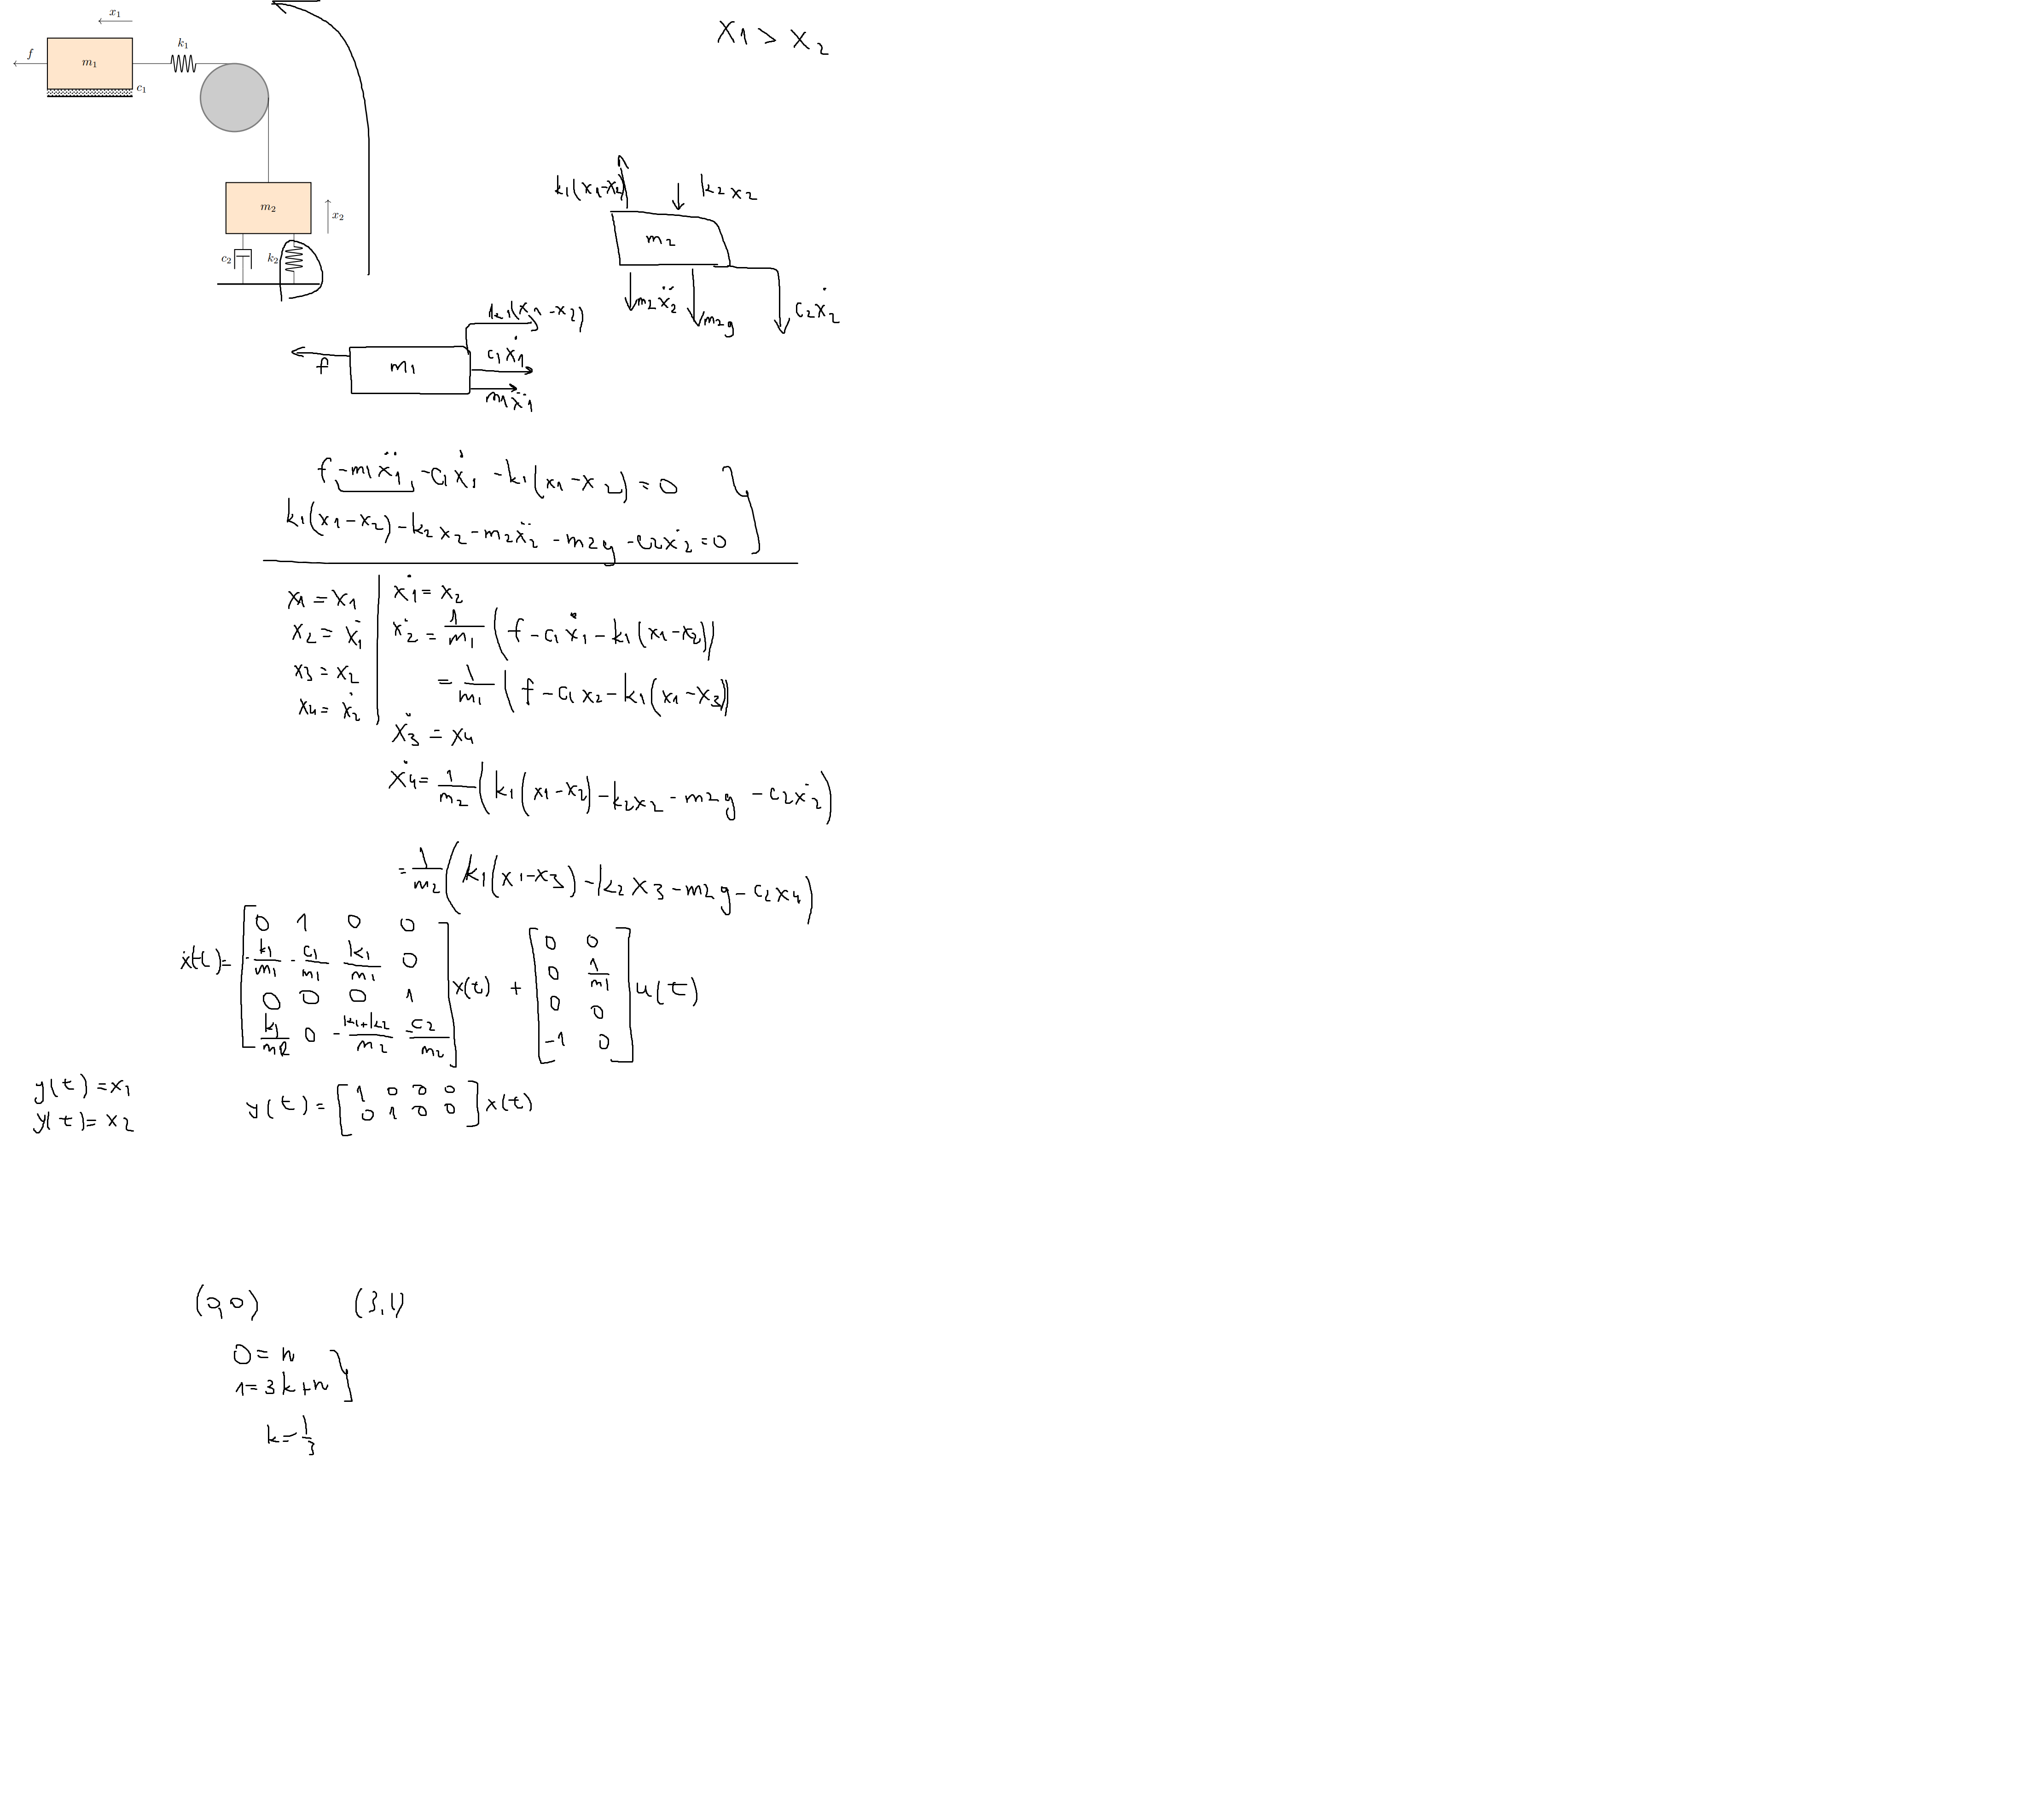 x₁
f
m₁
k₁
c₁
m₂
x₂
c₂
k₂
X₁ > X₂
k₁(x₁-x₂)
k₂x₂
m₂
m₂ẍ₂
m₂g
c₂ẋ₂
k₁(x₁-x₂)
f
m₁
c₁ẋ₁
m₁ẍ₁
f - m₁ẍ₁ - c₁ẋ₁ - k₁(x₁-x₂) = 0
k₁(x₁-x₂) - k₂x₂ - m₂ẍ₂ - m₂g - c₂ẋ₂ = 0
x₁ = x₁
x₂ = ẋ₁
x₃ = x₂
x₄ = ẋ₂
ẋ₁ = x₂
ẋ₂ = 1/m₁ (f - c₁ẋ₁ - k₁(x₁-x₂))
= 1/m₁ (f - c₁x₂ - k₁(x₁-x₃))
ẋ₃ = x₄
ẋ₄ = 1/m₂ (k₁(x₁-x₂) - k₂x₂ - m₂g - c₂ẋ₂)
= 1/m₂ (k₁(x₁-x₃) - k₂x₃ - m₂g - c₂x₄)
ẋ(t) = [0 1 0 0; -k₁/m₁ -c₁/m₁ k₁/m₁ 0; 0 0 0 1; k₁/m₂ 0 -(k₁+k₂)/m₂ -c₂/m₂] x(t) + [0 0; 0 1/m₁; 0 0; -1 0] u(t)
y(t) = x₁
y(t) = x₂
y(t) = [1 0 0 0; 0 1 0 0] x(t)
(0,0) (3,1)
0 = n
1 = 3k+n
k = 1/3